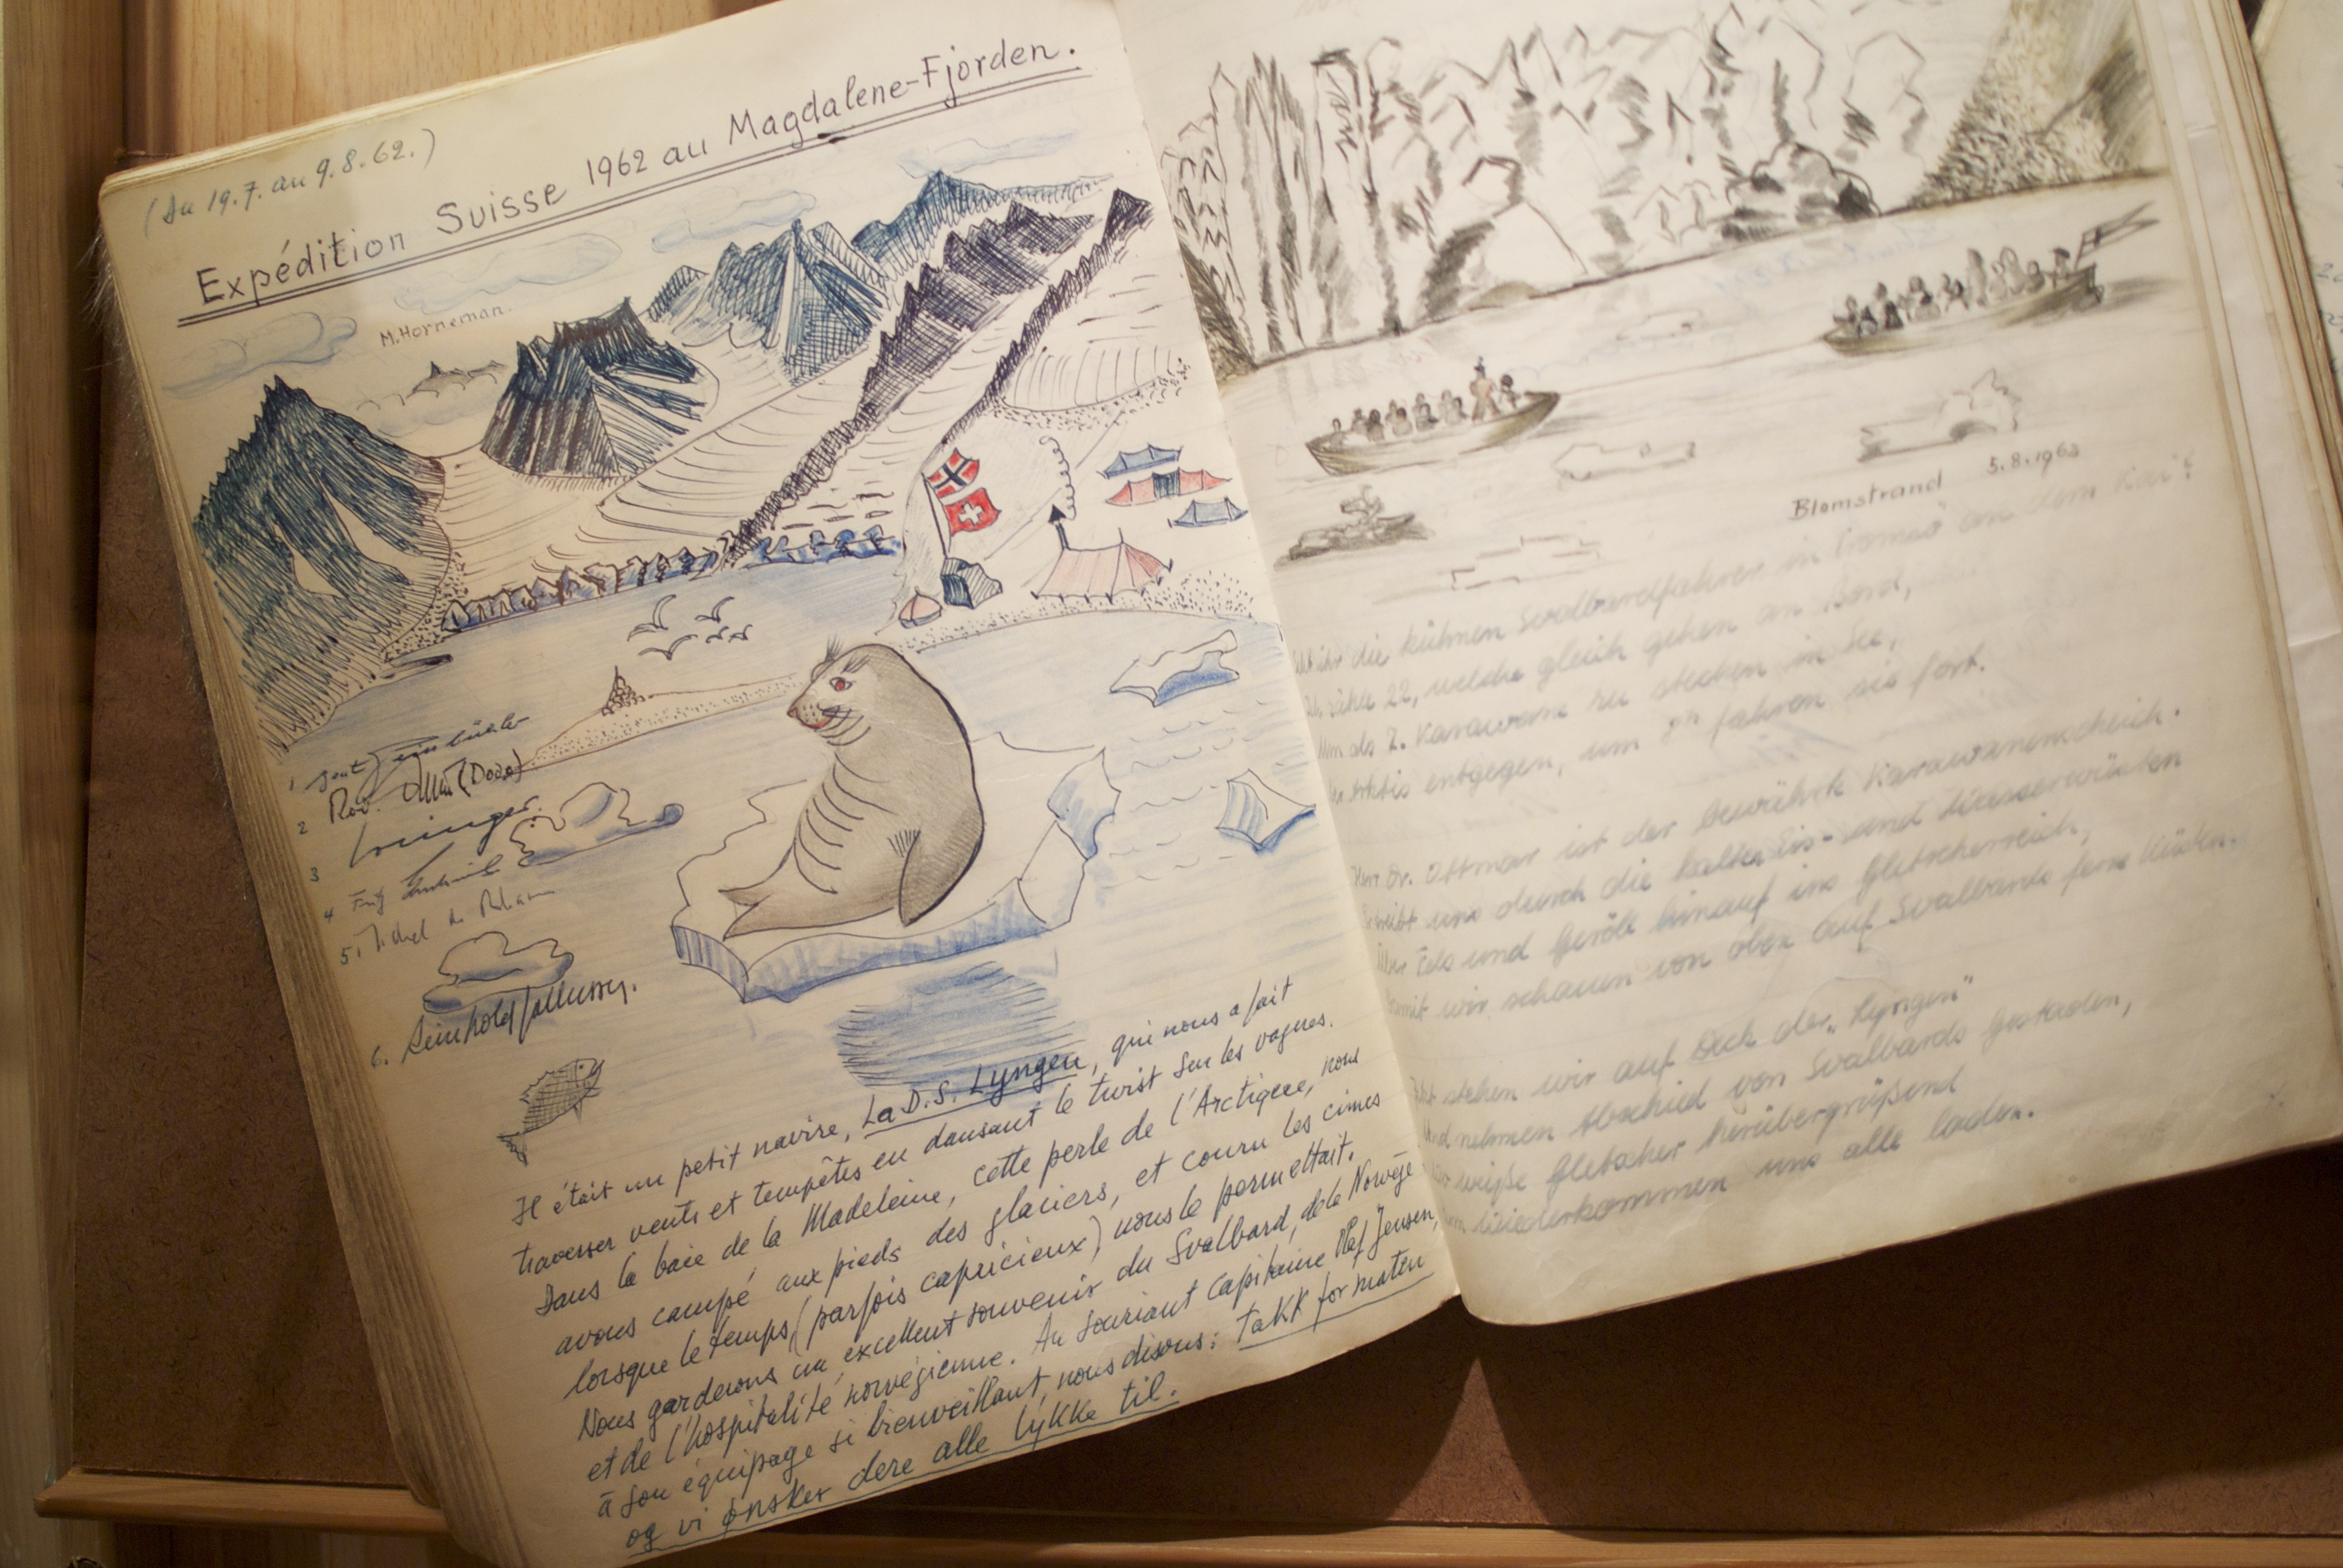 (Du 19.7. au 9.8.62.)
Expédition Suisse 1962 au Magdalene-Fjorden.
M. Horneman.
1
2 (Dodo)
3
4
5.
6. Reinhold
Il était un petit navire, La D.S. Lyngen, qui nous a fait
traverser vents et tempêtes en dansant le twist sur les vagues.
Dans la baie de la Madeleine, cette perle de l'Arctique, nous
avons campé aux pieds des glaciers, et couru les cimes
lorsque le temps (parfois capricieux) nous le permettait.
Nous garderons un excellent souvenir du Svalbard, de la Norvège
et de l'hospitalité norvégienne. Au souriant capitaine Olaf Jensen,
à son équipage si bienveillant, nous disons: Takk for maten
og vi ønsker dere alle lykke til.
Blomstrand 5.8.1962
die kühnen Svalbardfahrer in Tromsö an dem Kai?
22, welche gleich gehen an Bord,
Um als 2. Karawane zu stechen in See,
entgegen, um fahren sie fort.
Herr Dr. Ottmar ist der bewährte Karawanenscheich.
uns durch die kalten Eis- und Wasserwüsten
Über Fels und Geröll hinauf ins Gletscherreich,
Damit wir schauen von oben auf Svalbards ferne Küsten.
stehen wir auf Deck der "Lyngen"
Und nehmen Abschied von Svalbards Gestaden,
weiße Gletscher herübergrüßend
Wiederkommen uns alle laden.